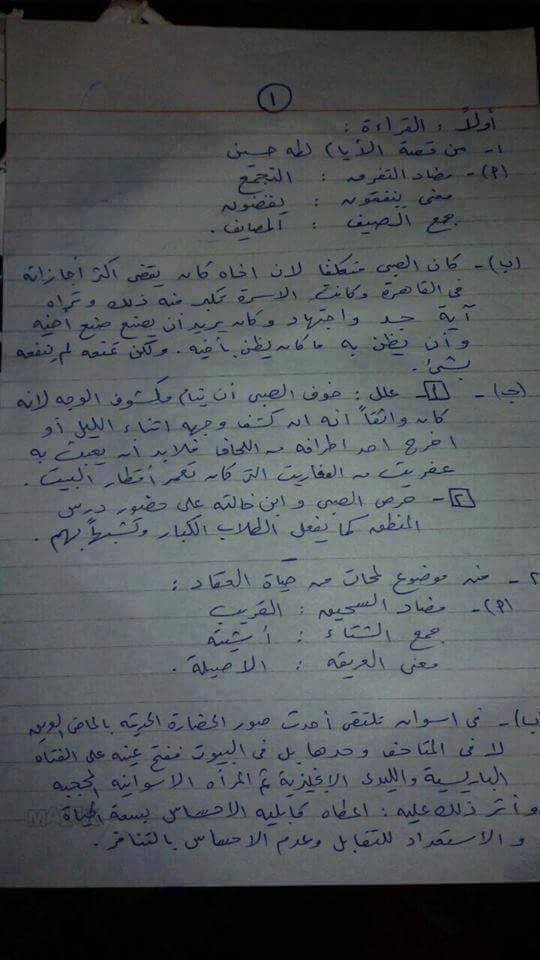 ١
أولاً : القراءة :
١- من قصة الأيام لطه حسين
(أ)- مضاد التفرق : التجمع
معنى ينفقون : يقضون
جمع الصيف : المصايف .
(ب)- كان الصبى متكلفا لان اخاه كان يقضى اكثر أجازاته
فى القاهرة وكانت الاسرة تكبر منه ذلك وتراه
آية جد واجتهاد وكان يريد أن يصنع صنع أخيه
وأن يظن به ما كان يظن بأخيه . ولكن تمنعه لم ينفعه
بشئ .
(جـ)- ١- علل : خوف الصبى أن ينام مكشوف الوجه لانه
كان واثقاً انه ان كشف وجهه اثناء الليل أو
اخرج احد اطرافه من اللحاف فلابد أن يعبث به
عفريت من العفاريت التى كان تعمر أقطار البيت .
٢- حرص الصبى و ابن خالته على حضور درس
المنطق كما يفعل الطلاب الكبار وتشبهاً بهم .
٢- من موضوع لمحات من حياة العقاد :
(أ)- مضاد السحيق : القريب
جمع الشتاء : أشتية
معنى العريقه : الاصيلة .
(ب)- فى اسوان تلتقى أحدث صور الحضارة الحديثه بالماضى
لا فى المتاحف وحدها بل فى البيوت ففتح عينه على الفتاه
الباريسية والليدى الإنجليزية ثم المرأه الاسوانيه المحجبه
وأثر ذلك عليه : اعطاه قابليه الاحساس بسعة الحياة
و الاستعداد للتقابل وعدم الاحساس بالتنافر .